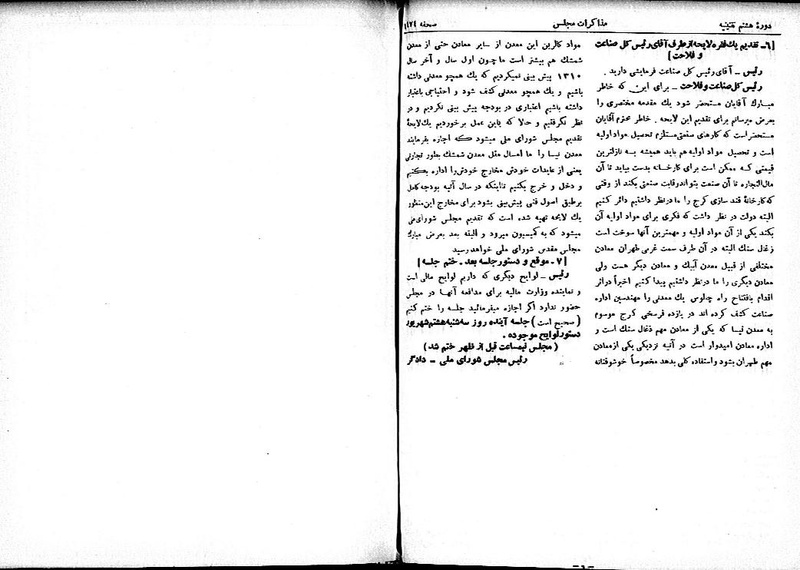 دورهٔ هشتم تقنینیه
مذاکرات مجلس
صحفه ۱۱۷۲۱
[۶ـ تقدیم یك فقره لایحه از طرف آقای رئیس کل صناعت
و فلاحت]
رئیس ـ آقای رئیس کل صناعت فرمایشی دارید .
رئیس کل صناعت و فلاحت ـ برای این که خاطر
مبارك آقایان مستحضر شود یك مقدمه مختصری را
بعرض میرسانم برای تقدیم این لایحه . خاطر محترم آقایان
مستحضر است که کارهای صنعتی مستلزم تحصیل مواد اولیه
است و تحصیل مواد اولیه هم باید همیشه به نازلترین
قیمتی که ممکن است برای کارخانه بدست بیاید تا آن
مال‌التجاره تا آن صنعت بتواند رقابت صنعتی بکند از وقتی
که کارخانهٔ قند سازی کرج را ما در نظر داشتیم دائر کنیم
البته دولت در نظر داشت که فکری برای مواد اولیه آن
بکند یکی از آن مواد اولیه و مهمترین آنها سوخت است
زغال سنك البته در آن طرف سمت غربی طهران معادن
مختلفی از قبیل معدن آبیك و معادن دیگر هست ولی
معادن دیگری را ما در نظر داشتیم پیدا کنیم اخیراً در اثر
اقدام بافتتاح راه چالوس یك معدنی را مهندسین اداره
صناعت کشف کرده اند در یازده فرسخی کرج موسوم
به معدن نیسا که یکی از معادن مهم ذغال سنك است و
اداره معادن امیدوار است در آتیه نزدیکی یکی از معادن
مهم طهران بشود و استفاده کلی بدهد مخصوصاً خوشوقتانه
مواد کالرین این معدن از سایر معادن حتی از معدن
شمشك هم بیشتر است ما چون اول سال و آخر سال
۱۳۱۰ پیش بینی نمیکردیم که یك همچو معدنی داشته
باشیم و یك همچو معدنی کشف شود و احتیاجی باعتبار
داشته باشیم اعتباری در بودجه پیش بینی نکردیم و در
نظر نگرفتیم و حالا که باین عمل برخوردیم یك لایحهٔ
تقدیم مجلس شورای ملی میشود که اجازه بفرمایند
معدن نیسا را ما امسال مثل معدن شمشك بطور تجارتی
یعنی از عایدات خودش مخارج خودش را اداره بکنیم
و دخل و خرج بکنیم تا اینکه در سال آتیه بودجه کامل
برطبق اصول فنی پیش‌بینی بشود برای مخارج این منظور
یك لایحه تهیه شده است که تقدیم مجلس شورای ملی
میشود که به کمیسیون میرود و البته بعد بعرض مبارك
مجلس مقدس شورای ملی خواهد رسید
[ ۷ ـ موقع و دستور جلسه بعد ـ ختم جلسه ]
رئیس ـ لوایح دیگری که داریم لوایح مالی است
و نماینده وزارت مالیه برای مدافعه آنها در مجلس
حضور ندارد اگر اجازه میفرمائید جلسه را ختم کنیم
( صحیح است ) جلسه آینده روز سه‌شنبه هشتم شهریور
دستور لوایح موجوده .
( مجلس نیمساعت قبل از ظهر ختم شد )
رئیس مجلس شورای ملی ـ دادگر